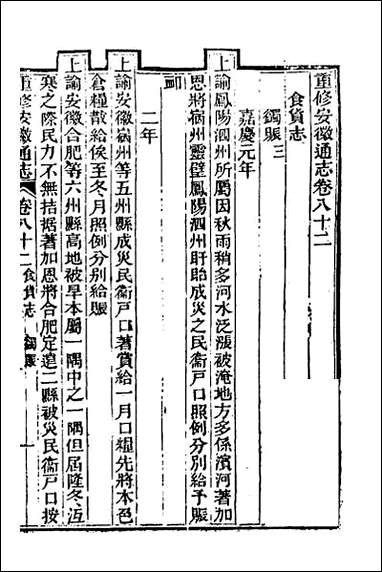 重修安徽通志卷八十二
食貨志
蠲賑三
嘉慶元年
上諭鳳陽泗州所屬因秋雨稍多河水泛漲被淹地方多係濱河著加
恩將宿州靈璧鳳陽泗州盱眙成災之民衞戶口照例分別給予賑
卹
二年
上諭安徽宿州等五州縣成災民衞戶口著賞給一月口糧先將本色
倉糧散給俟至冬月照例分別給賑
上諭安徽合肥等六州縣高地被旱本屬一隅中之一隅但屆隆冬沍
寒之際民力不無拮据著加恩將合肥定遠二縣被災民衞戶口按
重修安徽通志 卷八十二 食貨志 蠲賑 一